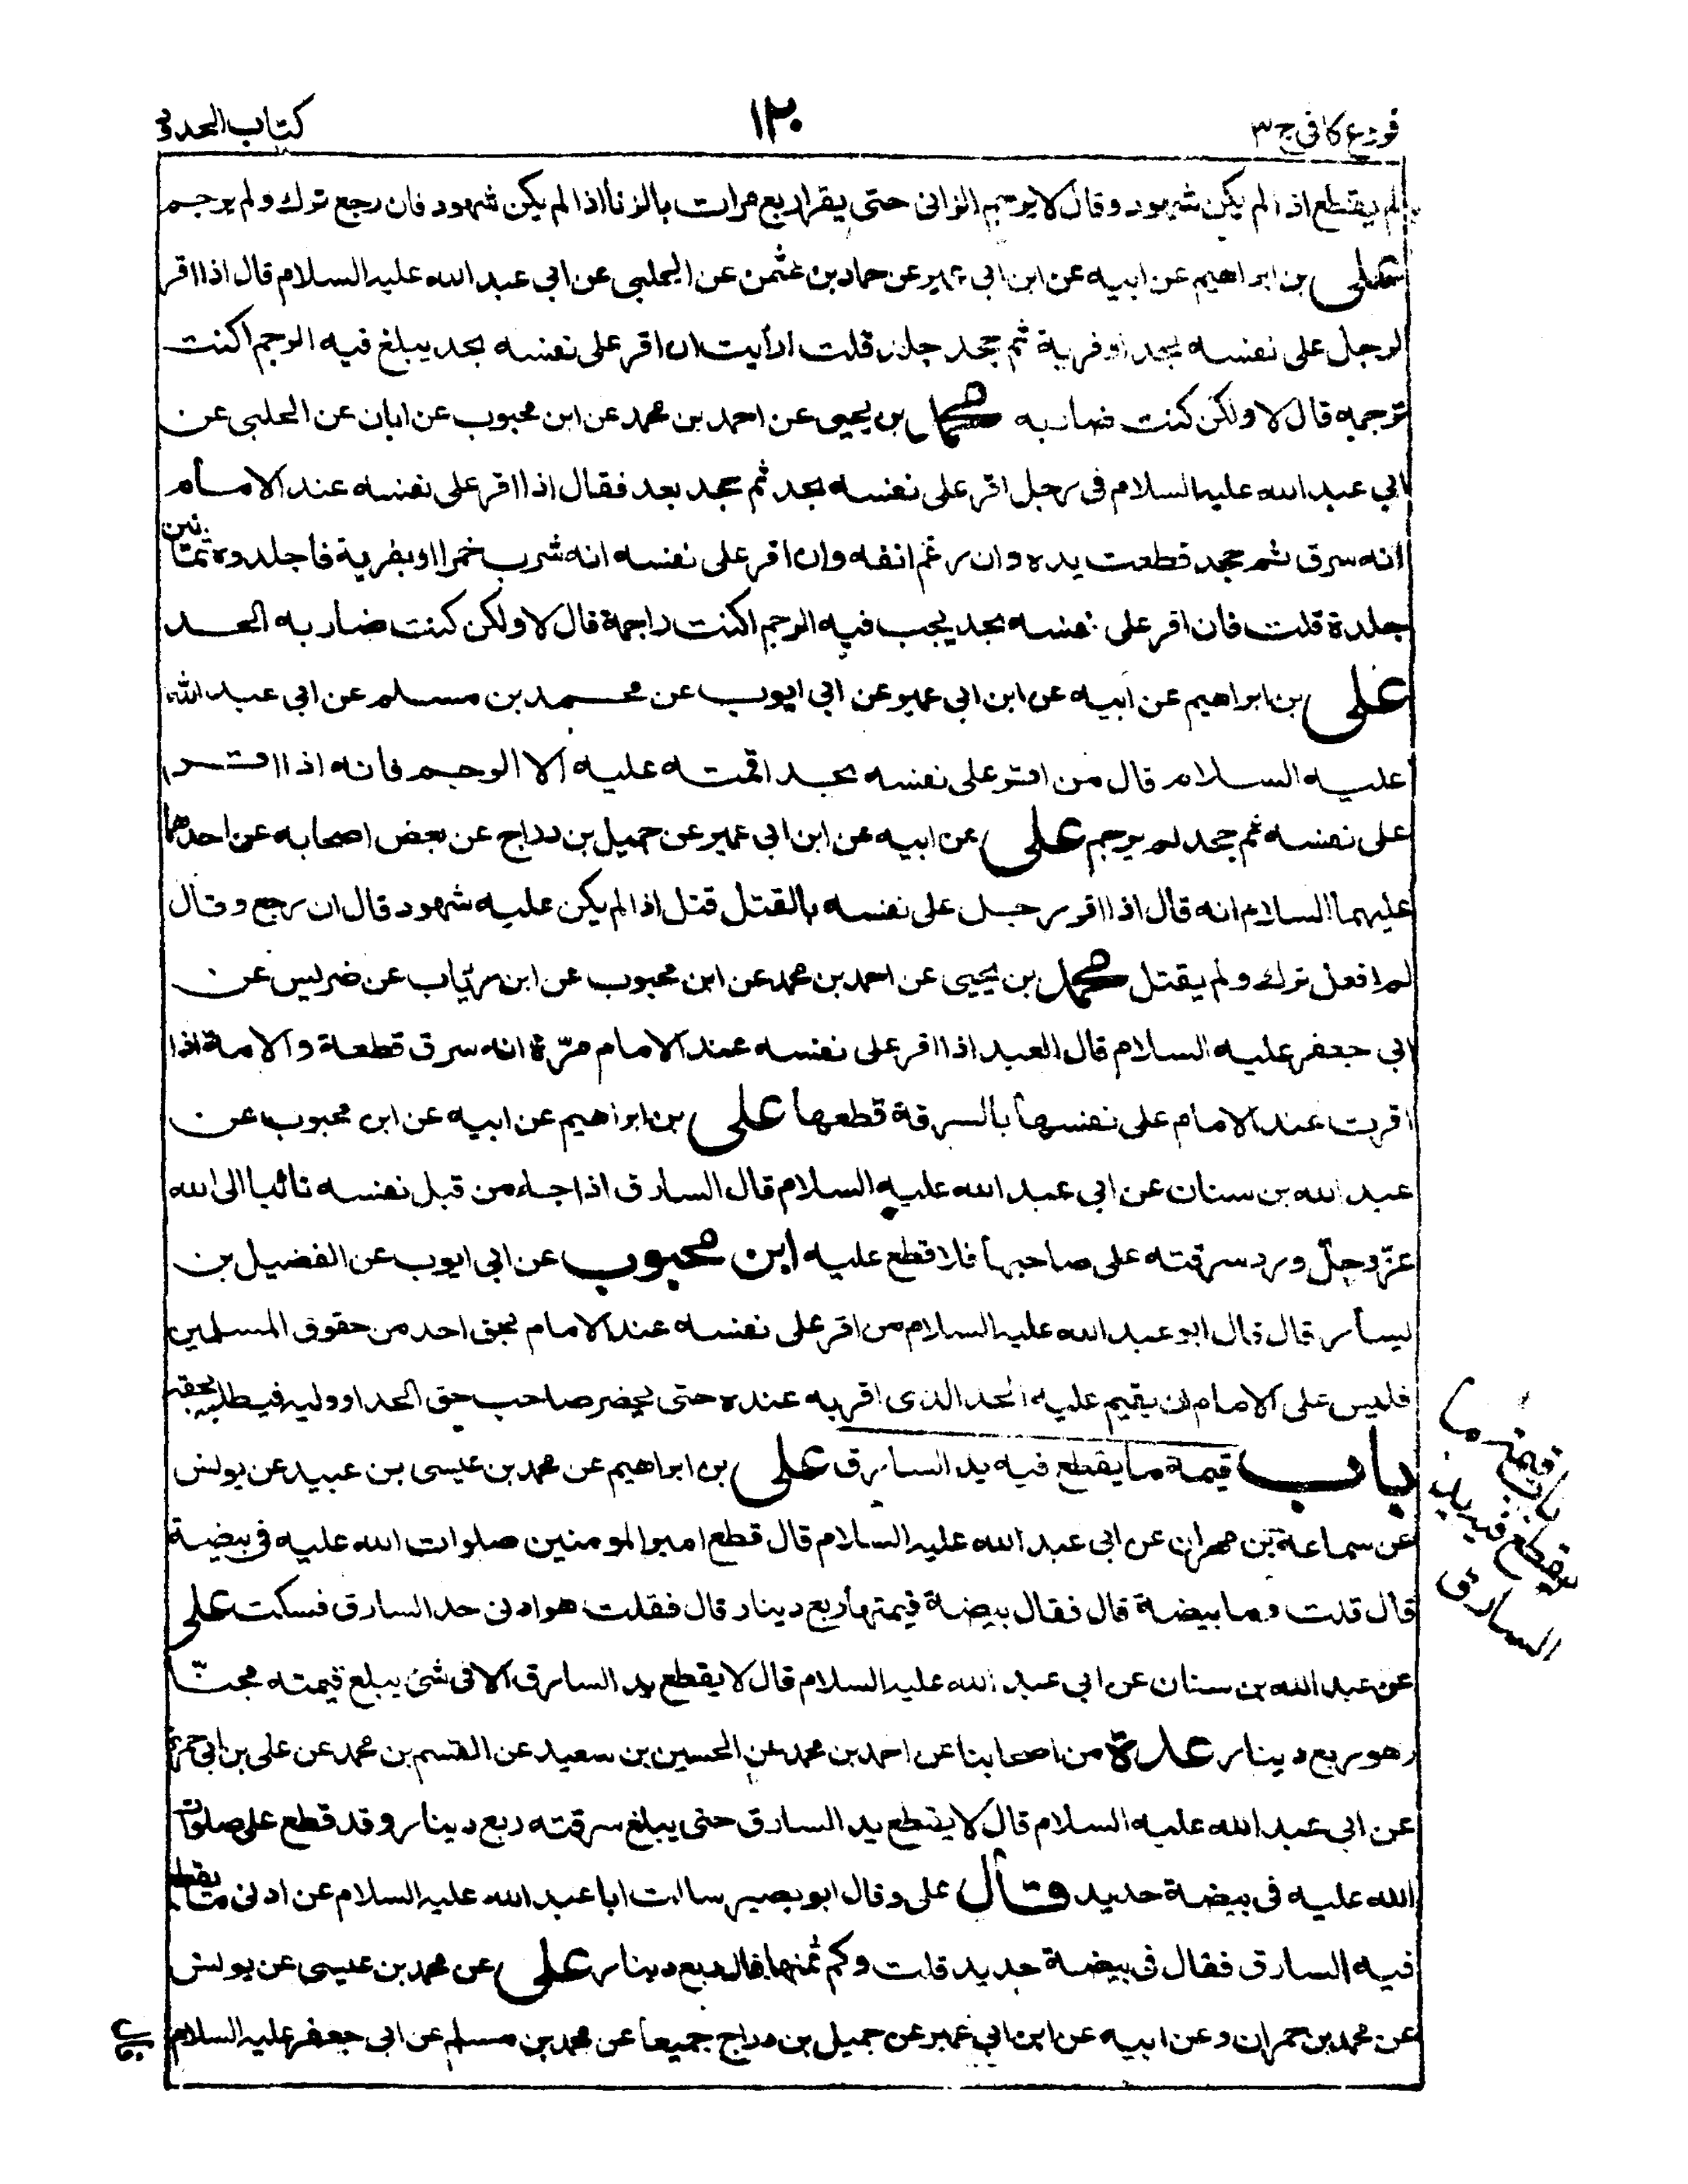 فروع كافى ج ٣
١٢٠
كتاب الحدود
لم يقطع اذا لم يكن شهود وقال لا يرجم الزانى حتى يقر اربع مرات بالزنا اذا لم يكن شهود فان رجع ترك ولم يرجم
على بن ابراهيم عن ابيه عن ابن ابى عمير عن حماد بن عثمن عن الحلبى عن ابى عبد الله عليه السلام قال اذا اقر
الرجل على نفسه بحد او فرية ثم جحد جلد قلت ارأيت ان اقر على نفسه بحد يبلغ فيه الرجم اكنت
ترجمه قال لا ولكن كنت ضاربه محمد بن يحيى عن احمد بن محمد عن ابن محبوب عن ابان عن الحلبى عن
ابى عبد الله عليه السلام فى رجل اقر على نفسه بحد ثم جحد بعد فقال اذا اقر على نفسه عند الامام
انه سرق ثم جحد قطعت يده وان رغم انفه وان اقر على نفسه انه شرب خمرا او بفرية فاجلدوه ثمانين
جلدة قلت فان اقر على نفسه بحد يجب فيه الرجم اكنت راجمه قال لا ولكن كنت ضاربه الحد
على بن ابراهيم عن ابيه عن ابن ابى عمير عن ابى ايوب عن محمد بن مسلم عن ابى عبد الله
عليه السلام قال من اقر على نفسه بحد اقمته عليه الا الرجم فانه اذا اقر
على نفسه ثم جحد لم يرجم على عن ابيه عن ابن ابى عمير عن جميل بن دراج عن بعض اصحابه عن احدهما
عليهما السلام انه قال اذا اقر رجل على نفسه بالقتل قتل اذا لم يكن عليه شهود قال ان رجع وقال
لم افعل ترك ولم يقتل محمد بن يحيى عن احمد بن محمد عن ابن محبوب عن ابن رئاب عن ضريس عن
ابى جعفر عليه السلام قال العبد اذا اقر على نفسه عند الامام مرّة انه سرق قطعة والامة اذا
اقرت عند الامام على نفسها بالسرقة قطعها على بن ابراهيم عن ابيه عن ابن محبوب عن
عبد الله بن سنان عن ابى عبد الله عليه السلام قال السارق اذا جاء من قبل نفسه تائبا الى الله
عزّ وجلّ ورد سرقته على صاحبها فلا قطع عليه ابن محبوب عن ابى ايوب عن الفضيل بن
يسار قال قال ابو عبد الله عليه السلام من اقر على نفسه عند الامام بحق احد من حقوق المسلمين
فليس على الامام ان يقيم عليه الحد الذى اقر به عنده حتى يحضر صاحب حق الحد او وليه فيطلب بحقه
باب قيمة ما يقطع فيه يد السارق على بن ابراهيم عن محمد بن عيسى بن عبيد عن يونس
عن سماعة بن مهران عن ابى عبد الله عليه السلام قال قطع امير المومنين صلوات الله عليه فى بيضة
قال قلت وما بيضة قال فقال بيضة قيمتها ربع دينار قال فقلت هو ادنى حد السارق فسكت على
عن عبد الله بن سنان عن ابى عبد الله عليه السلام قال لا يقطع يد السارق الا فى شئ يبلغ قيمته مجنّا
وهو ربع دينار عدة من اصحابنا عن احمد بن محمد عن الحسين بن سعيد عن القسم بن محمد عن على بن ابى حمزة
عن ابى عبد الله عليه السلام قال لا يقطع يد السارق حتى يبلغ سرقته ربع دينار وقد قطع على صلوات
الله عليه فى بيضة حديد وقال على وقال ابو بصير سالت ابا عبد الله عليه السلام عن ادنى ما يقطع
فيه السارق فقال فى بيضة حديد قلت وكم ثمنها قال ربع دينار على عن محمد بن عيسى عن يونس
عن محمد بن حمران وعن ابيه عن ابن ابى عمير عن جميل بن دراج جميعا عن محمد بن مسلم عن ابى جعفر عليه السلام
باب قيمة ما
يقطع فيه يد
السارق